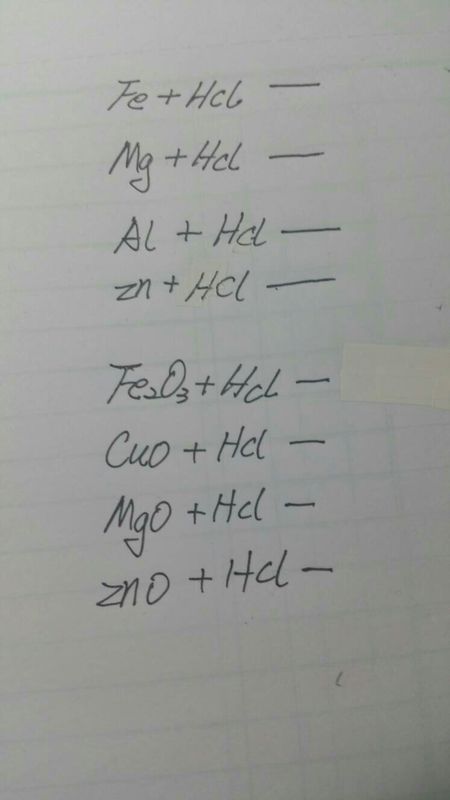 Fe + HCl —
Mg + HCl —
Al + HCl —
zn + HCl —
Fe₂O₃ + HCl —
CuO + HCl —
MgO + HCl —
znO + HCl —